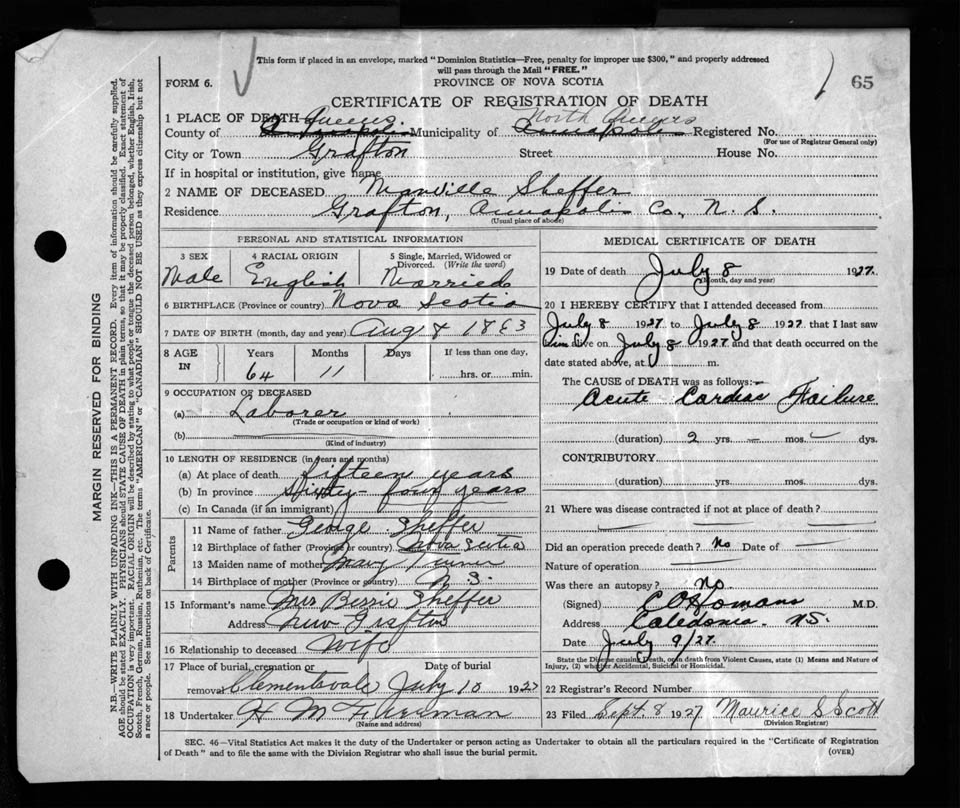 This form if placed in an envelope, marked "Dominion Statistics—Free, penalty for improper use $300," and properly addressed
will pass through the Mail "FREE."
FORM 6.
PROVINCE OF NOVA SCOTIA
65
CERTIFICATE OF REGISTRATION OF DEATH
1 PLACE OF DEATH Queens. North Queens
County of Annapolis Municipality of Annapolis Registered No.
(For use of Registrar General only)
City or Town Grafton Street House No.
If in hospital or institution, give name
2 NAME OF DECEASED Manville Sheffer
Residence Grafton, Annapolis Co., N. S.
(Usual place of abode)
PERSONAL AND STATISTICAL INFORMATION
3 SEX 4 RACIAL ORIGIN 5 Single, Married, Widowed or
Divorced. (Write the word)
Male English Married
6 BIRTHPLACE (Province or country) Nova Scotia
7 DATE OF BIRTH (month, day and year) Aug 8 1863
8 AGE Years Months Days If less than one day,
IN 64 11 hrs. or min.
9 OCCUPATION OF DECEASED
(a) Laborer
(Trade or occupation or kind of work)
(b)
(Kind of industry)
10 LENGTH OF RESIDENCE (in years and months)
(a) At place of death fifteen years
(b) In province Sixty-four years
(c) In Canada (if an immigrant)
Parents
11 Name of father George Sheffer
12 Birthplace of father (Province or country) Nova Scotia
13 Maiden name of mother Mary
14 Birthplace of mother (Province or country) N. S.
15 Informant's name Mrs Bessie Sheffer
Address New Grafton
16 Relationship to deceased Wife
17 Place of burial, cremation or Date of burial
removal Clementsvale July 10 1927
18 Undertaker H M
(Name and address)
MEDICAL CERTIFICATE OF DEATH
19 Date of death July 8 1927.
(Month, day and year)
20 I HEREBY CERTIFY that I attended deceased from
July 8 1927 to July 8 1927 that I last saw
him alive on July 8 1927 and that death occurred on the
date stated above, at m.
The CAUSE of DEATH was as follows:—
Acute Cardiac Failure
(duration) 2 yrs. — mos. — dys.
CONTRIBUTORY
(duration) yrs. mos. dys.
21 Where was disease contracted if not at place of death?
Did an operation precede death? No Date of
Nature of operation
Was there an autopsy? No
(Signed) C O Homans M.D.
Address Caledonia. NS.
Date July 9/27.
State the Disease causing Death, or in death from Violent Causes, state (1) Means and Nature of
Injury, (2) whether Accidental, Suicidal or Homicidal.
22 Registrar's Record Number
23 Filed Sept. 8 1927 Maurice S Scott
(Division Registrar)
SEC. 46—Vital Statistics Act makes it the duty of the Undertaker or person acting as Undertaker to obtain all the particulars required in the "Certificate of Registration
of Death" and to file the same with the Division Registrar who shall issue the burial permit.
(OVER)
MARGIN RESERVED FOR BINDING
N.B.—WRITE PLAINLY WITH UNFADING INK—THIS IS A PERMANENT RECORD. Every item of information should be carefully supplied.
AGE should be stated EXACTLY. PHYSICIANS should STATE CAUSE OF DEATH in plain terms, so that it may be properly classified. Exact statement of
OCCUPATION is very important. RACIAL ORIGIN will be described by stating to what people or tongue the deceased person belonged, whether English, Irish,
Scotch, French, German, Russian, Ruthenian, etc. The terms "AMERICAN" or "CANADIAN" SHOULD NOT BE USED as they express citizenship but not
a race or people. See instructions on back of Certificate.